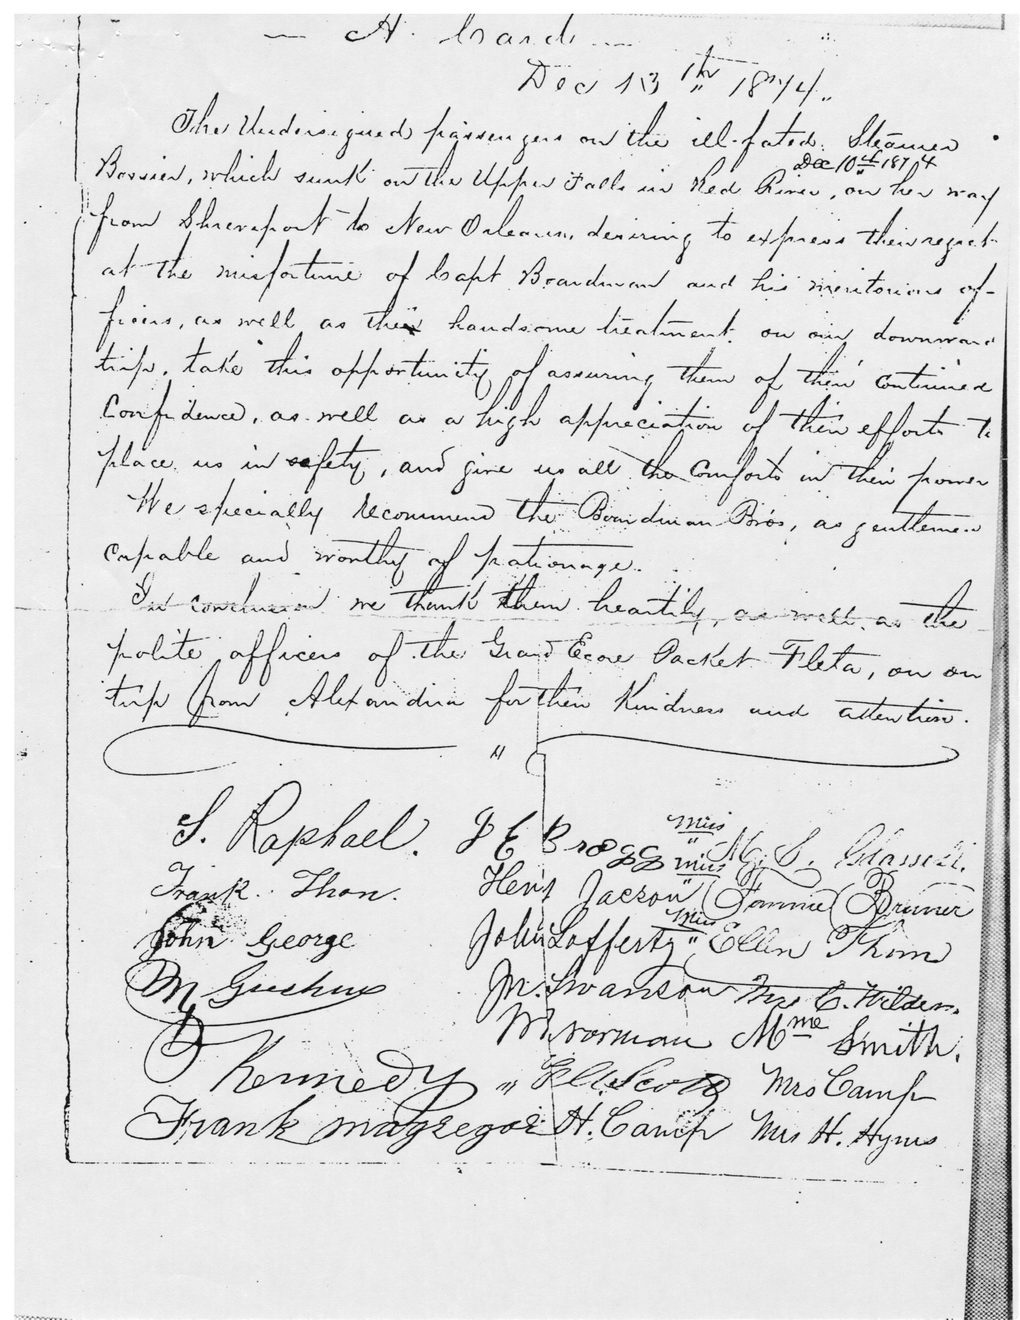 — A. Card. —
Dec 13th 1874.
The Undersigned passengers on the ill-fated Steamer
Dec 10th 1874
Bossier, which sunk on the Upper Falls in Red River, on her way
from Shreveport to New Orleans, desiring to express their regret
at the misfortune of Capt Boardman and his meritorious of-
ficers, as well as their handsome treatment on our downward
trip, take this opportunity of assuring them of their continued
Confidence, as well as a high appreciation of their efforts to
place us in safety, and give us all the Comforts in their power
We specially recommend the Boardman Bros, as gentlemen
capable and worthy of patronage.
In conclusion we thank them heartily, as well as the
polite officers of the Grand Ecore Packet Fleta, on our
trip from Alexandria for their Kindness and attention.
"
S. Raphael. J E Brogg Miss M. S. Glassell.
Frank Thon. Henry Jacson " Miss Fannie Bruner
John George John Lafferty " Miss Ellen Thom
M Jn. Swanson Mrs C. Wilder.
W Norman Mme Smith.
P Kennedy " Scott Mrs Camp
Frank Magregor H. Camp Mrs H. Hyms